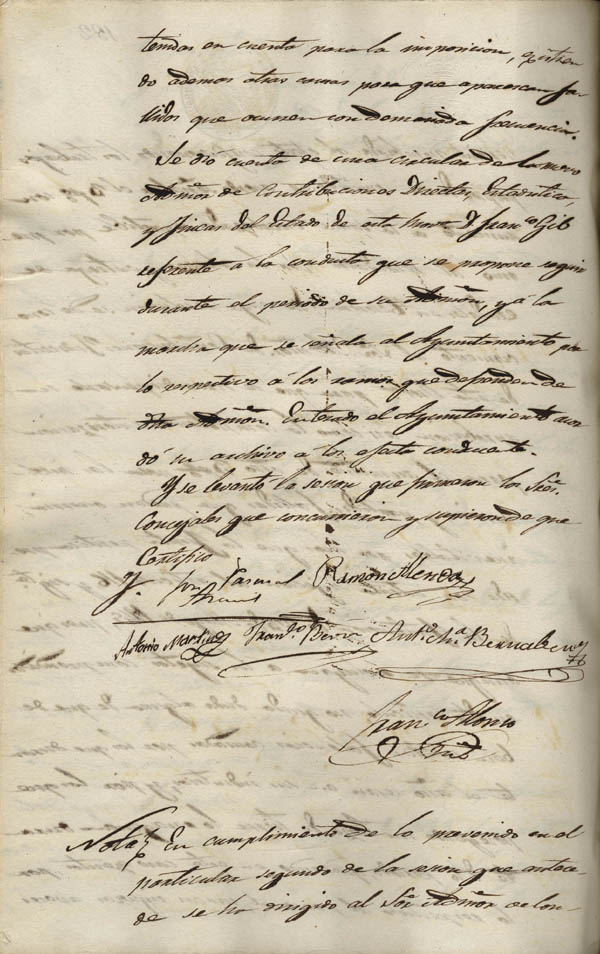 tenidas en cuenta para la imposicion, existien
do ademas otras causas para que aparezcan fa
llidos que ocurren con demasiada frecuencia.
Se dió cuenta de una circular de la nueva
Admōn de Contribuciones Directas, Estadistica
y Fincas del Estado de esta Provª D. Franco Gil
referente á la conducta que se propone seguir
durante el periodo de su Admōn, y á la
marcha que se señala al Ayuntamiento por
lo respectivo á los ramos que dependen de
dha Admōn. Enterado el Ayuntamiento acor
dó su archivo á los efectos conducentes.
Y se levantó la sesion que firmaron los Sres.
Concejales que concurrieron y supieron de que
Certifico
Pascual Ramon
Antonio Martinez Anto Ma Bernabeu
Franco Alonso
Nota, En cumplimiento de lo prevenido en el
particular segundo de la sesion que antece-
de se ha dirigido al Sor Admōr de Con-